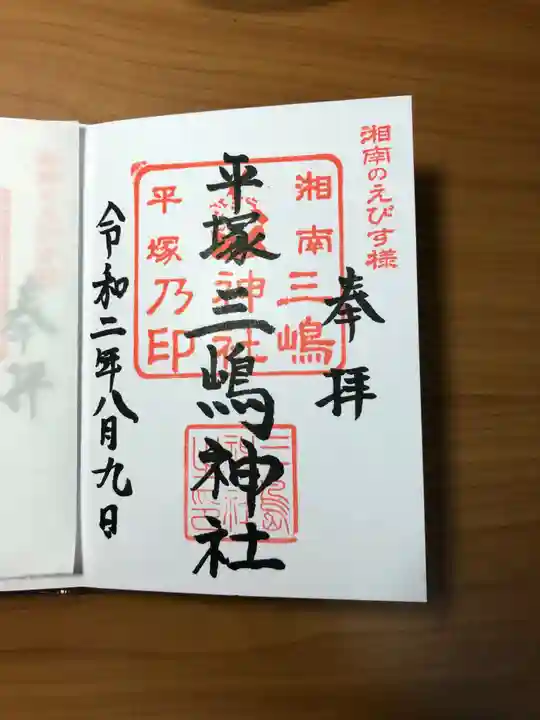 湘南のえびす様
奉拝
平塚三嶋神社
湘南三嶋
神社
平塚乃印
令和二年八月九日
奉拝